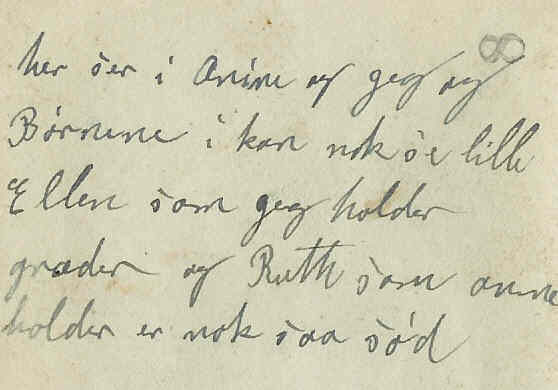 8
her ser i Anine og geg og
Børnene i kan nok se lille
Ellen som geg holder
græder og Ruth som anine
holder er nok saa sød